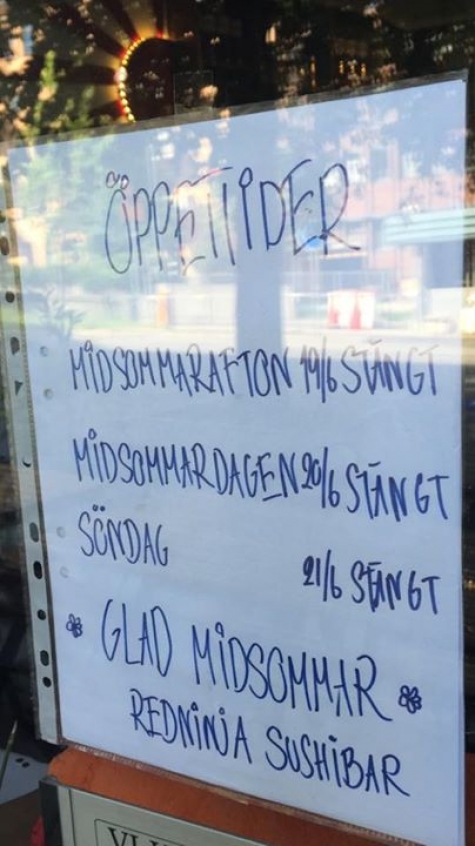 ÖPPETTIDER
MIDSOMMARAFTON 19/6 STÄNGT
MIDSOMMARDAGEN 20/6 STÄNGT
SÖNDAG 21/6 STÄNGT
GLAD MIDSOMMAR
REDNINJA SUSHIBAR